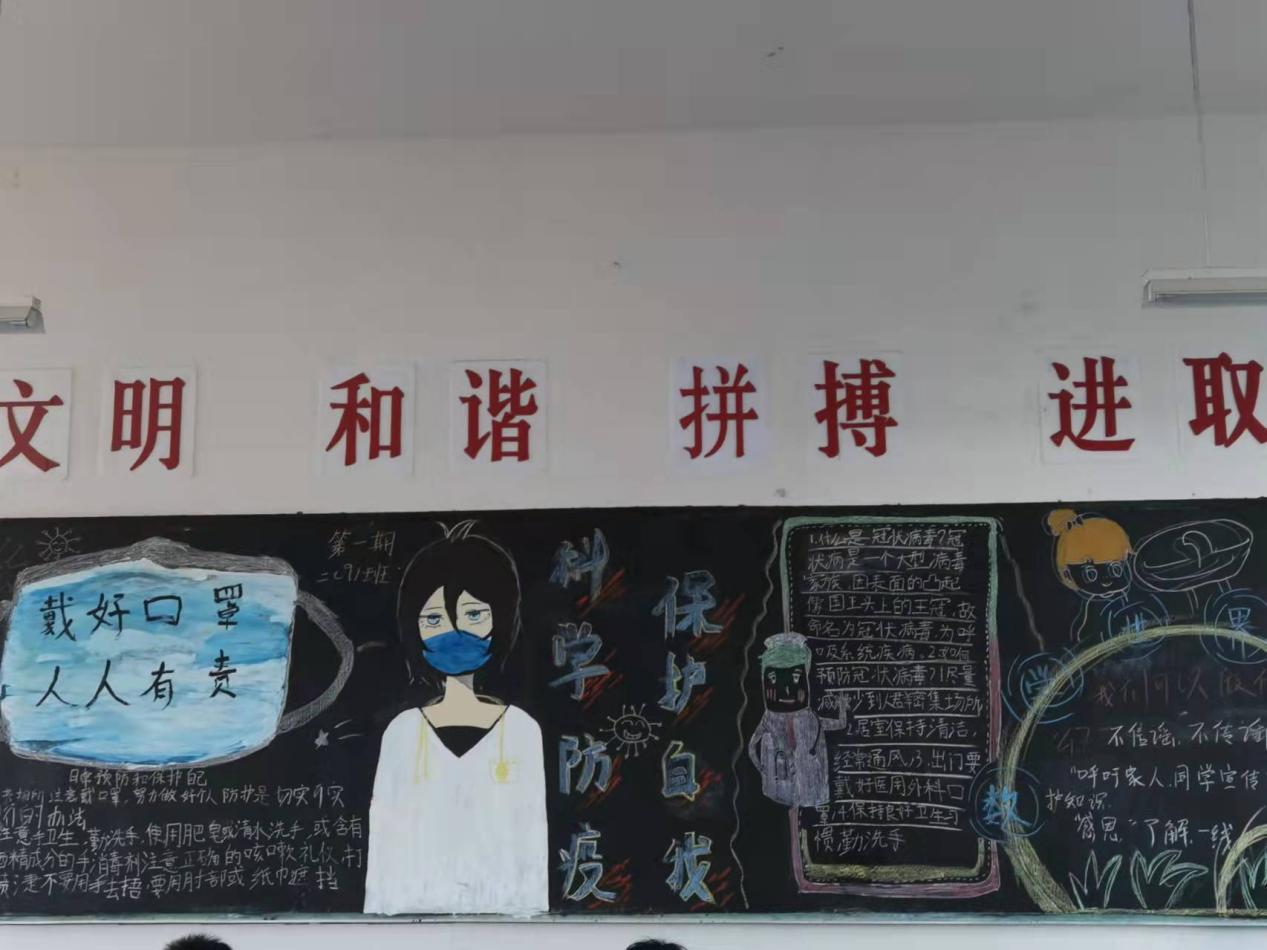 文明 和谐 拼搏 进取
戴好口罩
人人有责
第一期
二〇九班
日常预防和保护自己
注意戴口罩,努力做好个人防护是切实可实
行的办法
注意手卫生,勤洗手,使用肥皂或清水洗手,或含有
酒精成分的手消毒剂注意正确的咳嗽礼仪,打
喷嚏不要用手去捂,要用肘部或纸巾遮挡
科学防疫
保护自我
1.什么是冠状病毒?冠
状病是一个大型病毒
家族,因表面的凸起
像国王头上的王冠,故
命名为冠状病毒,为呼
吸系统疾病。2.如何
预防冠状病毒?1尽量
减少到人群密集场所,
2.居室保持清洁,
经常通风,3.出门要
戴好医用外科口
罩4保持良好卫生习
惯,勤洗手
世界
数
我们可以做
不信谣,不传谣
呼吁家人,同学宣传
护知识
"感恩"了解一线